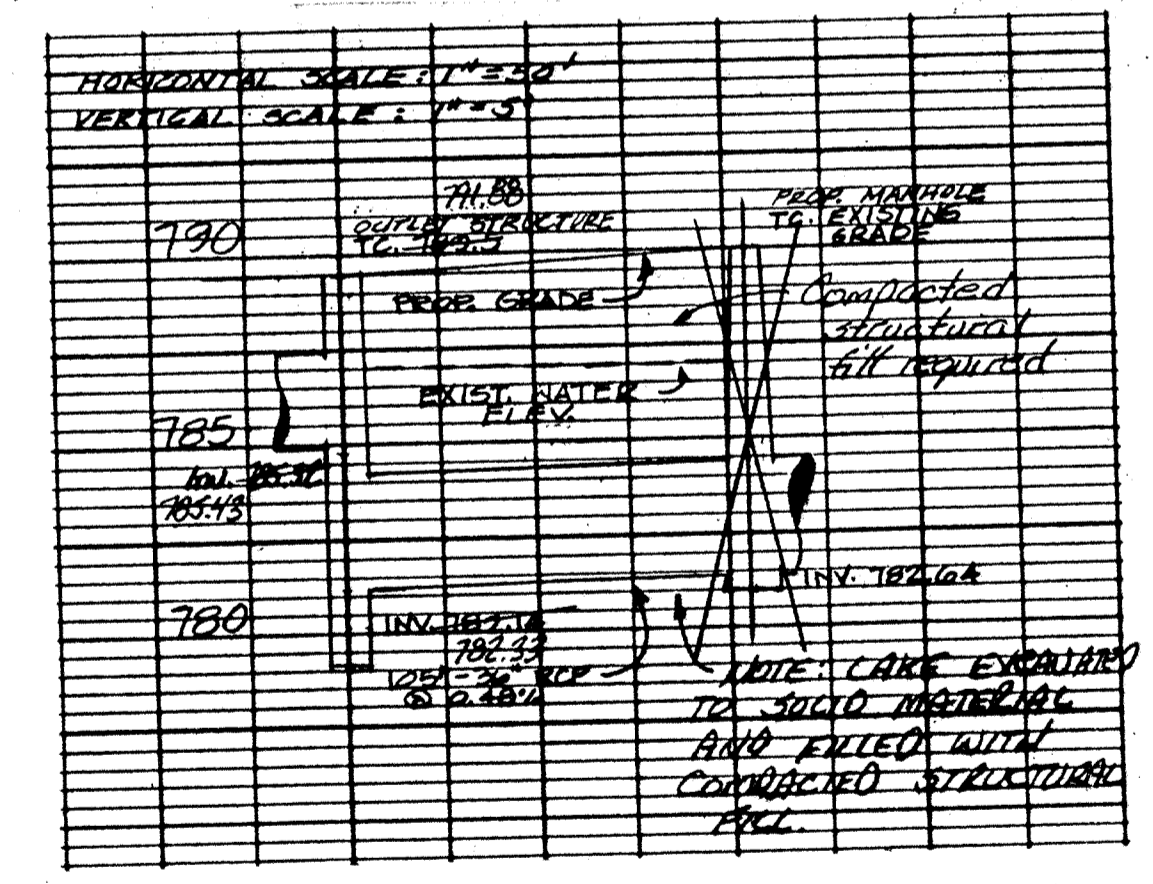 HORIZONTAL SCALE: 1" = 50'
VERTICAL SCALE: 1" = 5'
791.88
OUTLET STRUCTURE
TC.
790
PROP. MANHOLE
TC. EXISTING
GRADE
PROP. GRADE
Compacted
structural
fill required
EXIST. WATER
ELEV.
785
Inv.
785.43
INV. 782.64
780
INV.
782.33
105' - 36" RCP
@ 0.48%
NOTE: LAKE EXCAVATED
TO SOLID MATERIAL
AND FILLED WITH
COMPACTED STRUCTURAL
FILL.